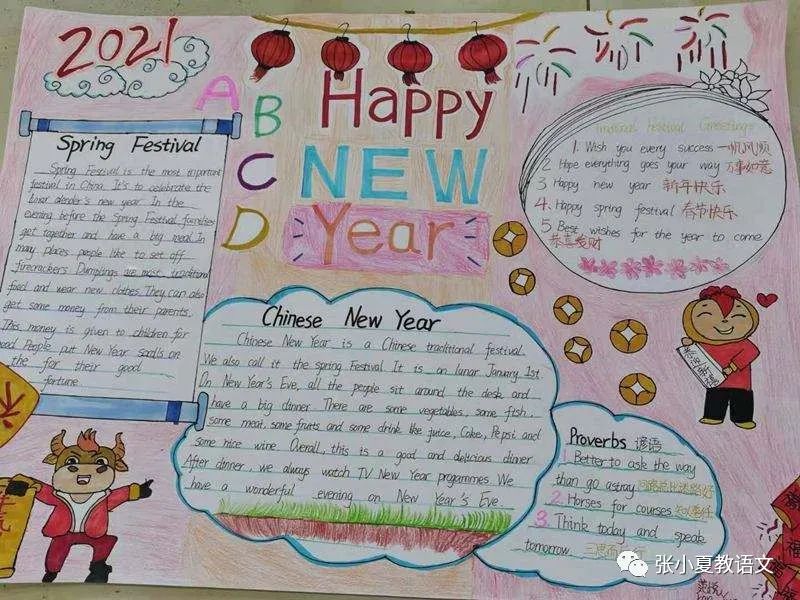 2021
A
B
C
D
Happy
NEW
Year
Spring Festival
Spring Festival is the most important
festival in China. It's to celebrate the
lunar calender's new year. In the
evening before the Spring Festival families
get together and have a big meal. In
many places people like to set off
firecrackers. Dumplings are most traditional
food and wear new clothes. They can also
get some money from their parents.
This money is given to children for
People put New Year
the for their good
fortune.
Chinese New Year
Chinese New Year is a Chinese traditional festival.
We also call it the spring Festival It is on lunar January 1st
On New Year's Eve, all the people sit around the desk and
have a big dinner. There are some vegetables, some fish,
some meat, some fruits and some drink like juice, Coke, Pepsi and
some nice wine. Overall, this is a good and delicious dinner.
After dinner, we always watch TV New Year progammes. We
have a wonderful evening on New Year's Eve.
Traditional Festival Greetings
1. Wish you every success 一帆风顺
2 Hope everything goes your way 万事如意
3 Happy new year 新年快乐
4. Happy spring festival 春节快乐
5. Best wishes for the year to come
恭喜发财
Proverbs 谚语
1. Better to ask the way
than go astray 问路总比迷路好
2. Horses for courses 知人善任
3. Think today and speak
tomorrow.
福
张小夏教语文